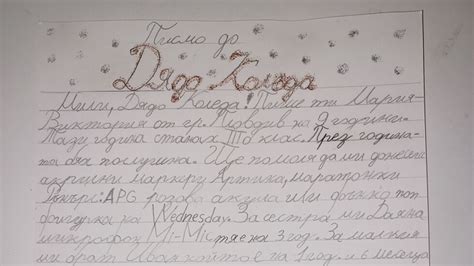 Писмо до
Дядо Коледа
Мили, Дядо Коледа! Пише ти Мария-
Виктория от гр. Пловдив на 9 годинки.
Тази година станах III клас. През година-
та бях послушна. Ще помоля да ми донесеш
акрилни маркери Артика, маратонки
розова акула или дънка поп
фигурка на Wednesday. За сестра ми Даяна
микрофон Mi-Mic тя е на 3 год. За малкия
ми брат Иван който е на 1 год. и 6 месеца